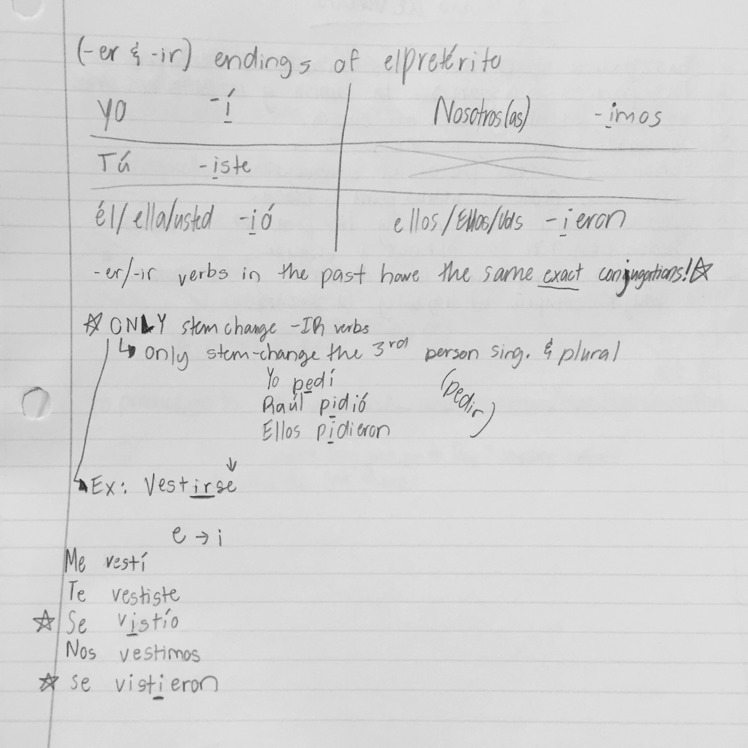 (-er & -ir) endings of el pretérito
Yo -í Nosotros(as) -imos
Tú -iste
él/ella/usted -ió ellos/Ellas/Uds -ieron
-er/-ir verbs in the past have the same exact conjugations!☆
☆ ONLY stem change -IR verbs
↳ only stem-change the 3rd person sing. & plural
Yo pedí (pedir)
Raúl pidió
Ellos pidieron
Ex: Vestirse
e → i
Me vestí
Te vestiste
☆ Se vistío
Nos vestimos
☆ se vistieron